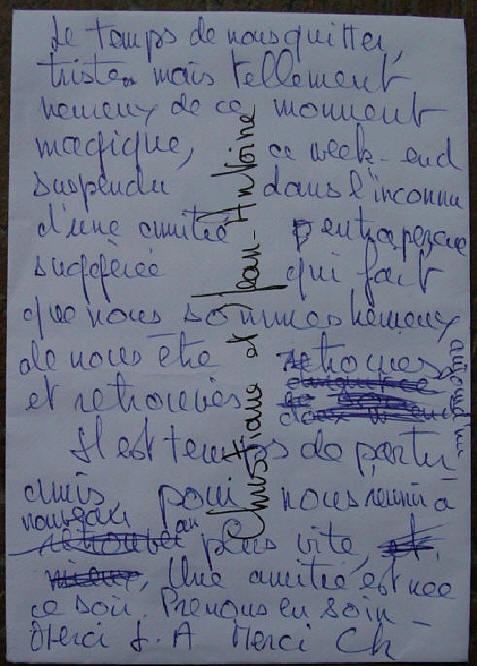 Le temps de nous quitter,
tristes mais tellement
heureux de ce moment
magique, ce week-end
suspendu dans l'inconnu
d'une amitié
suggérée qui fait
que nous sommes heureux
de nous être trouvés
et retrouvés aujourd'hui
Il est temps de partir
amis pour nous réunir à
nouveau au
plus vite,
Une amitié est née
ce soir. Prenons en soin -
Merci J. A Merci Ch
Christiane et Jean-Antoine